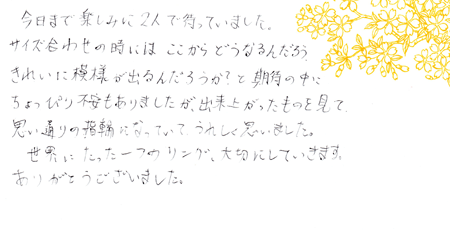 今日まで楽しみに2人で待っていました。
サイズ合わせの時には ここからどうなるんだろう
きれいに模様が出るんだろうか?と期待の中に
ちょっぴり不安もありましたが、出来上がったものを見て、
思い通りの指輪になっていて、うれしく思いました。
世界にたった一つのリング、大切にしていきます。
ありがとうございました。